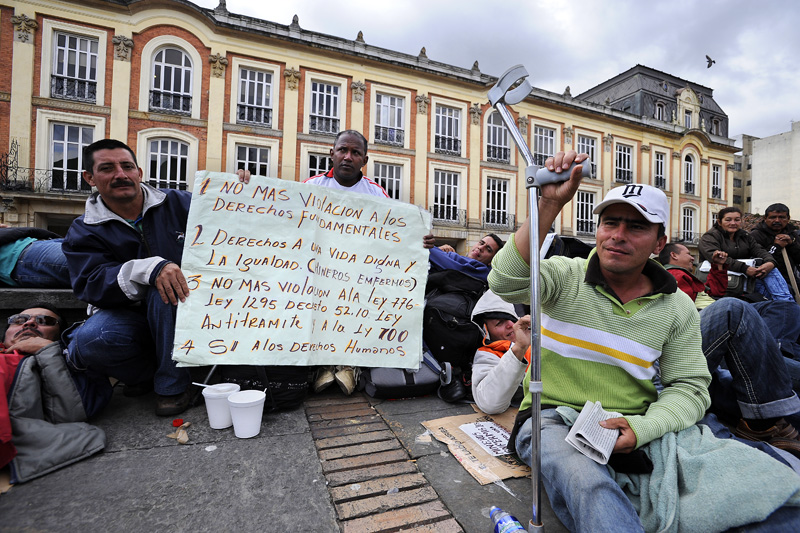 1 NO MAS VIOLACION A LOS
DERECHOS FUNDAMENTALES
2 DERECHOS A UNA VIDA DIGNA Y
LA IGUALDAD. (MINEROS ENFERMOS)
3 NO MAS VIOLACION A LA LEY 776
LEY 1295 DECRETO 5210 LEY
ANTITRAMITE Y A LA LY 100
4 SI A LOS DERECHOS HUMANOS